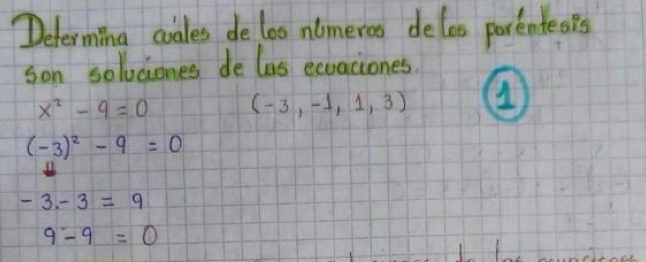 Determina cuáles de los números de los paréntesis
son soluciones de las ecuaciones.
x² - 9 = 0 (-3, -1, 1, 3) 1
(-3)² - 9 = 0
-3.-3 = 9
9-9 = 0
de las ecuaciones